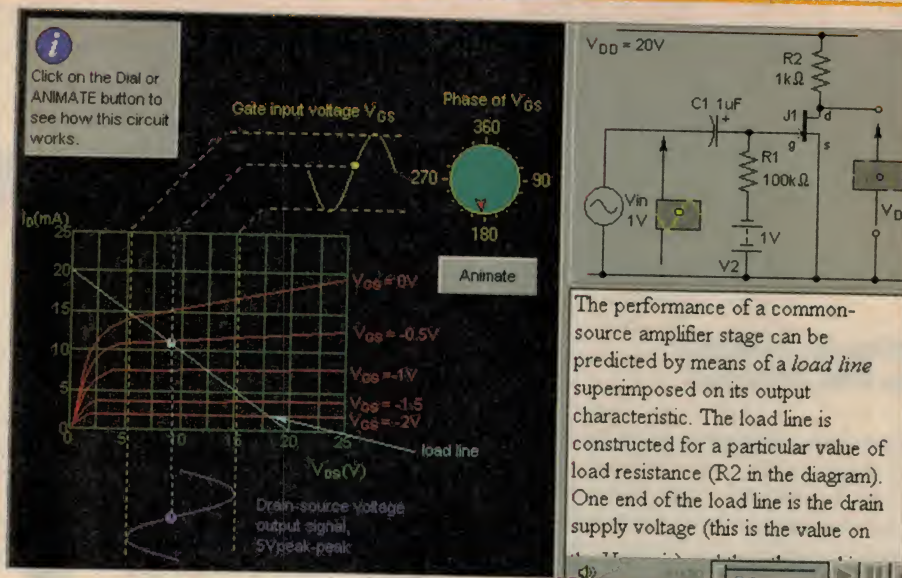 i
Click on the Dial or
ANIMATE button to
see how this circuit
works.
Gate input voltage VGS
Phase of VGS
360
270
90
180
Animate
ID(mA)
25
20
15
10
5
0
5
10
15
20
25
VGS = 0V
VGS = -0.5V
VGS = -1V
VGS = -1.5
VGS = -2V
load line
VDS(V)
Drain-source voltage
output signal,
5Vpeak-peak
VDD = 20V
R2
1kΩ
C1 1uF
+
J1
d
g
s
R1
100kΩ
Vin
1V
1V
V2
VD
The performance of a common-
source amplifier stage can be
predicted by means of a load line
superimposed on its output
characteristic. The load line is
constructed for a particular value of
load resistance (R2 in the diagram).
One end of the load line is the drain
supply voltage (this is the value on